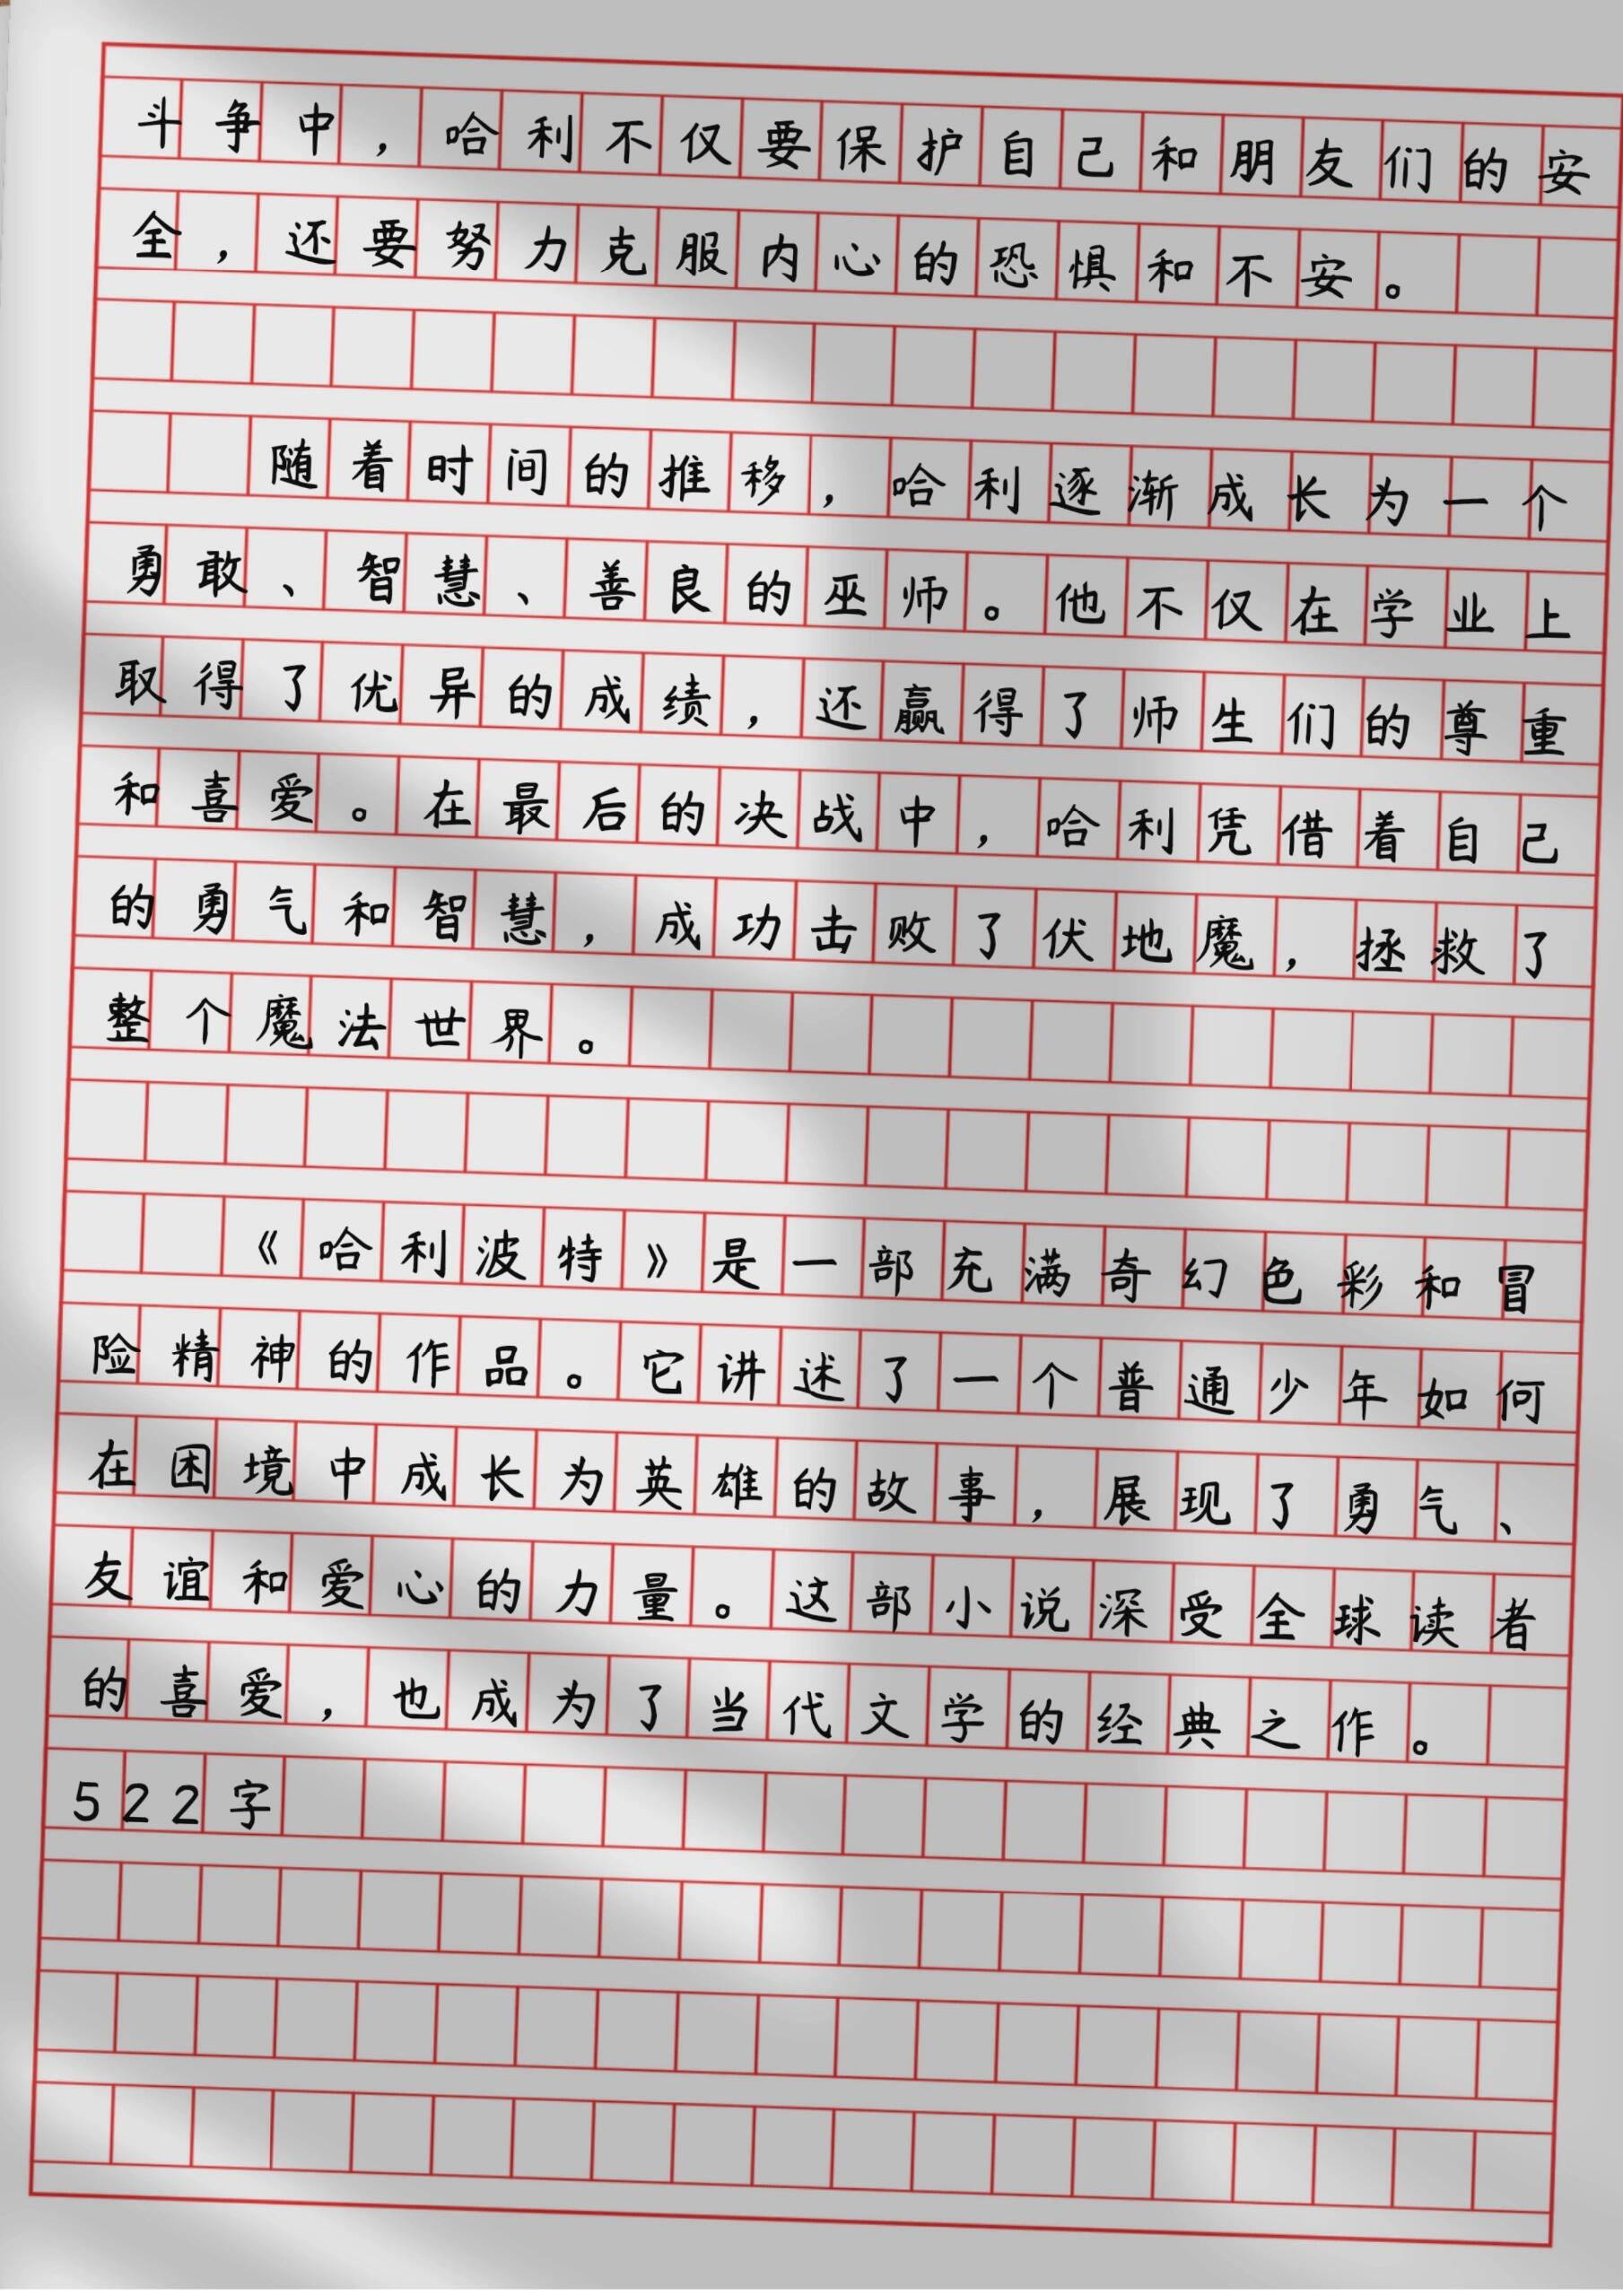 斗争中，哈利不仅要保护自己和朋友们的安
全，还要努力克服内心的恐惧和不安。
随着时间的推移，哈利逐渐成长为一个
勇敢、智慧、善良的巫师。他不仅在学业上
取得了优异的成绩，还赢得了师生们的尊重
和喜爱。在最后的决战中，哈利凭借着自己
的勇气和智慧，成功击败了伏地魔，拯救了
整个魔法世界。
《哈利波特》是一部充满奇幻色彩和冒
险精神的作品。它讲述了一个普通少年如何
在困境中成长为英雄的故事，展现了勇气、
友谊和爱心的力量。这部小说深受全球读者
的喜爱，也成为了当代文学的经典之作。
522字